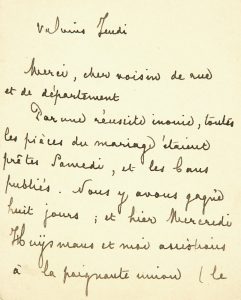 Valvins Jeudi
Merci, cher voisin de rue
et de département
Par une réussite inouïe, toutes
les pièces du mariage étaient
prêtes Samedi, et les bans
publiés. Nous y avons gagné
huit jours ; et hier Mercredi
Huÿsmans et moi assistions
à la poignante union (le